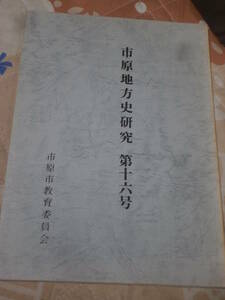 市原地方史研究 第十六号
市原市教育委員会